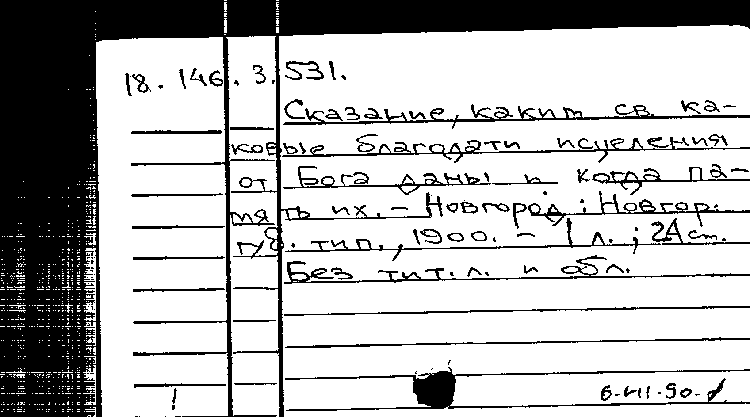 18.146.3.531.
Сказание, каким св. ка-
ковые благодати исцеления
от Бога даны и когда па-
мять их. - Новгород : Новгор.
губ. тип., 1900. - 1 л. ; 24 см.
Без тит. л. и обл.
1 6.VII.90.